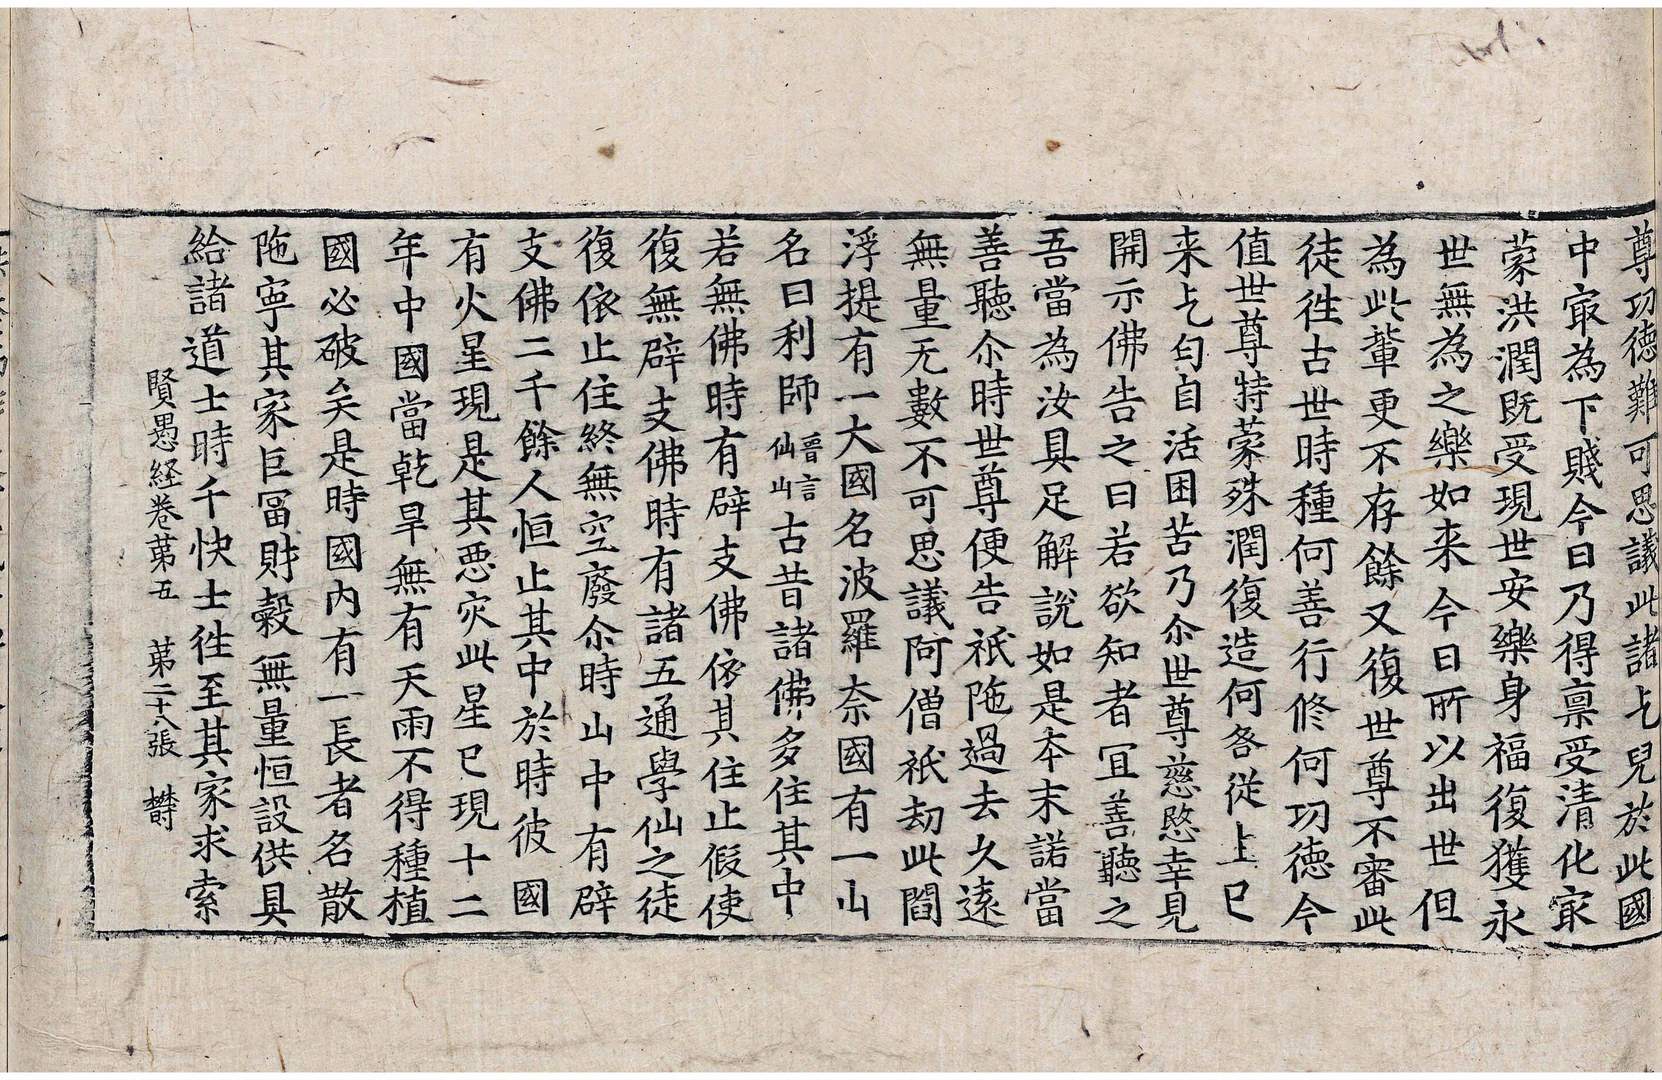 尊功德難可思議此諸乞兒於此國
中冣為下賤今日乃得禀受清化冣
蒙洪潤既受現世安樂身福復獲永
世無為之樂如来今日所以出世但
為此輩更不存餘又復世尊不審此
徒徃古世時種何善行修何功德今
值世尊特蒙殊潤復造何咎從上已
来乞匄自活困苦乃尒世尊慈愍幸見
開示佛告之曰若欲知者冝善聽之
吾當為汝具足解說如是本末諾當
善聽尒時世尊便告祇陁過去久遠
無量无數不可思議阿僧祇劫此閻
浮提有一大國名波羅奈國有一山
名曰利師晉言仙山古昔諸佛多住其中
若無佛時有辟支佛依其住止假使
復無辟支佛時有諸五通學仙之徒
復依止住終無空廢尒時山中有辟
支佛二千餘人恒止其中於時彼國
有火星現是其惡灾此星已現十二
年中國當乾旱無有天雨不得種植
國必破矣是時國內有一長者名散
陁寧其家巨冨財穀無量恒設供具
給諸道士時千快士徃至其家求索
賢愚経卷苐五 苐二十八張